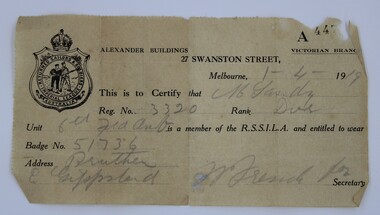 A 44
ALEXANDER BUILDINGS
VICTORIAN BRANC
27 SWANSTON STREET,
Melbourne, 1-4-1919
This is to Certify that
Reg. No. 3320 Rank
Unit 6th Fld Amb is a member of the R.S.S.I.L.A. and entitled to wear
Badge No. 51736
Address
E Gippsland
French
Secretary